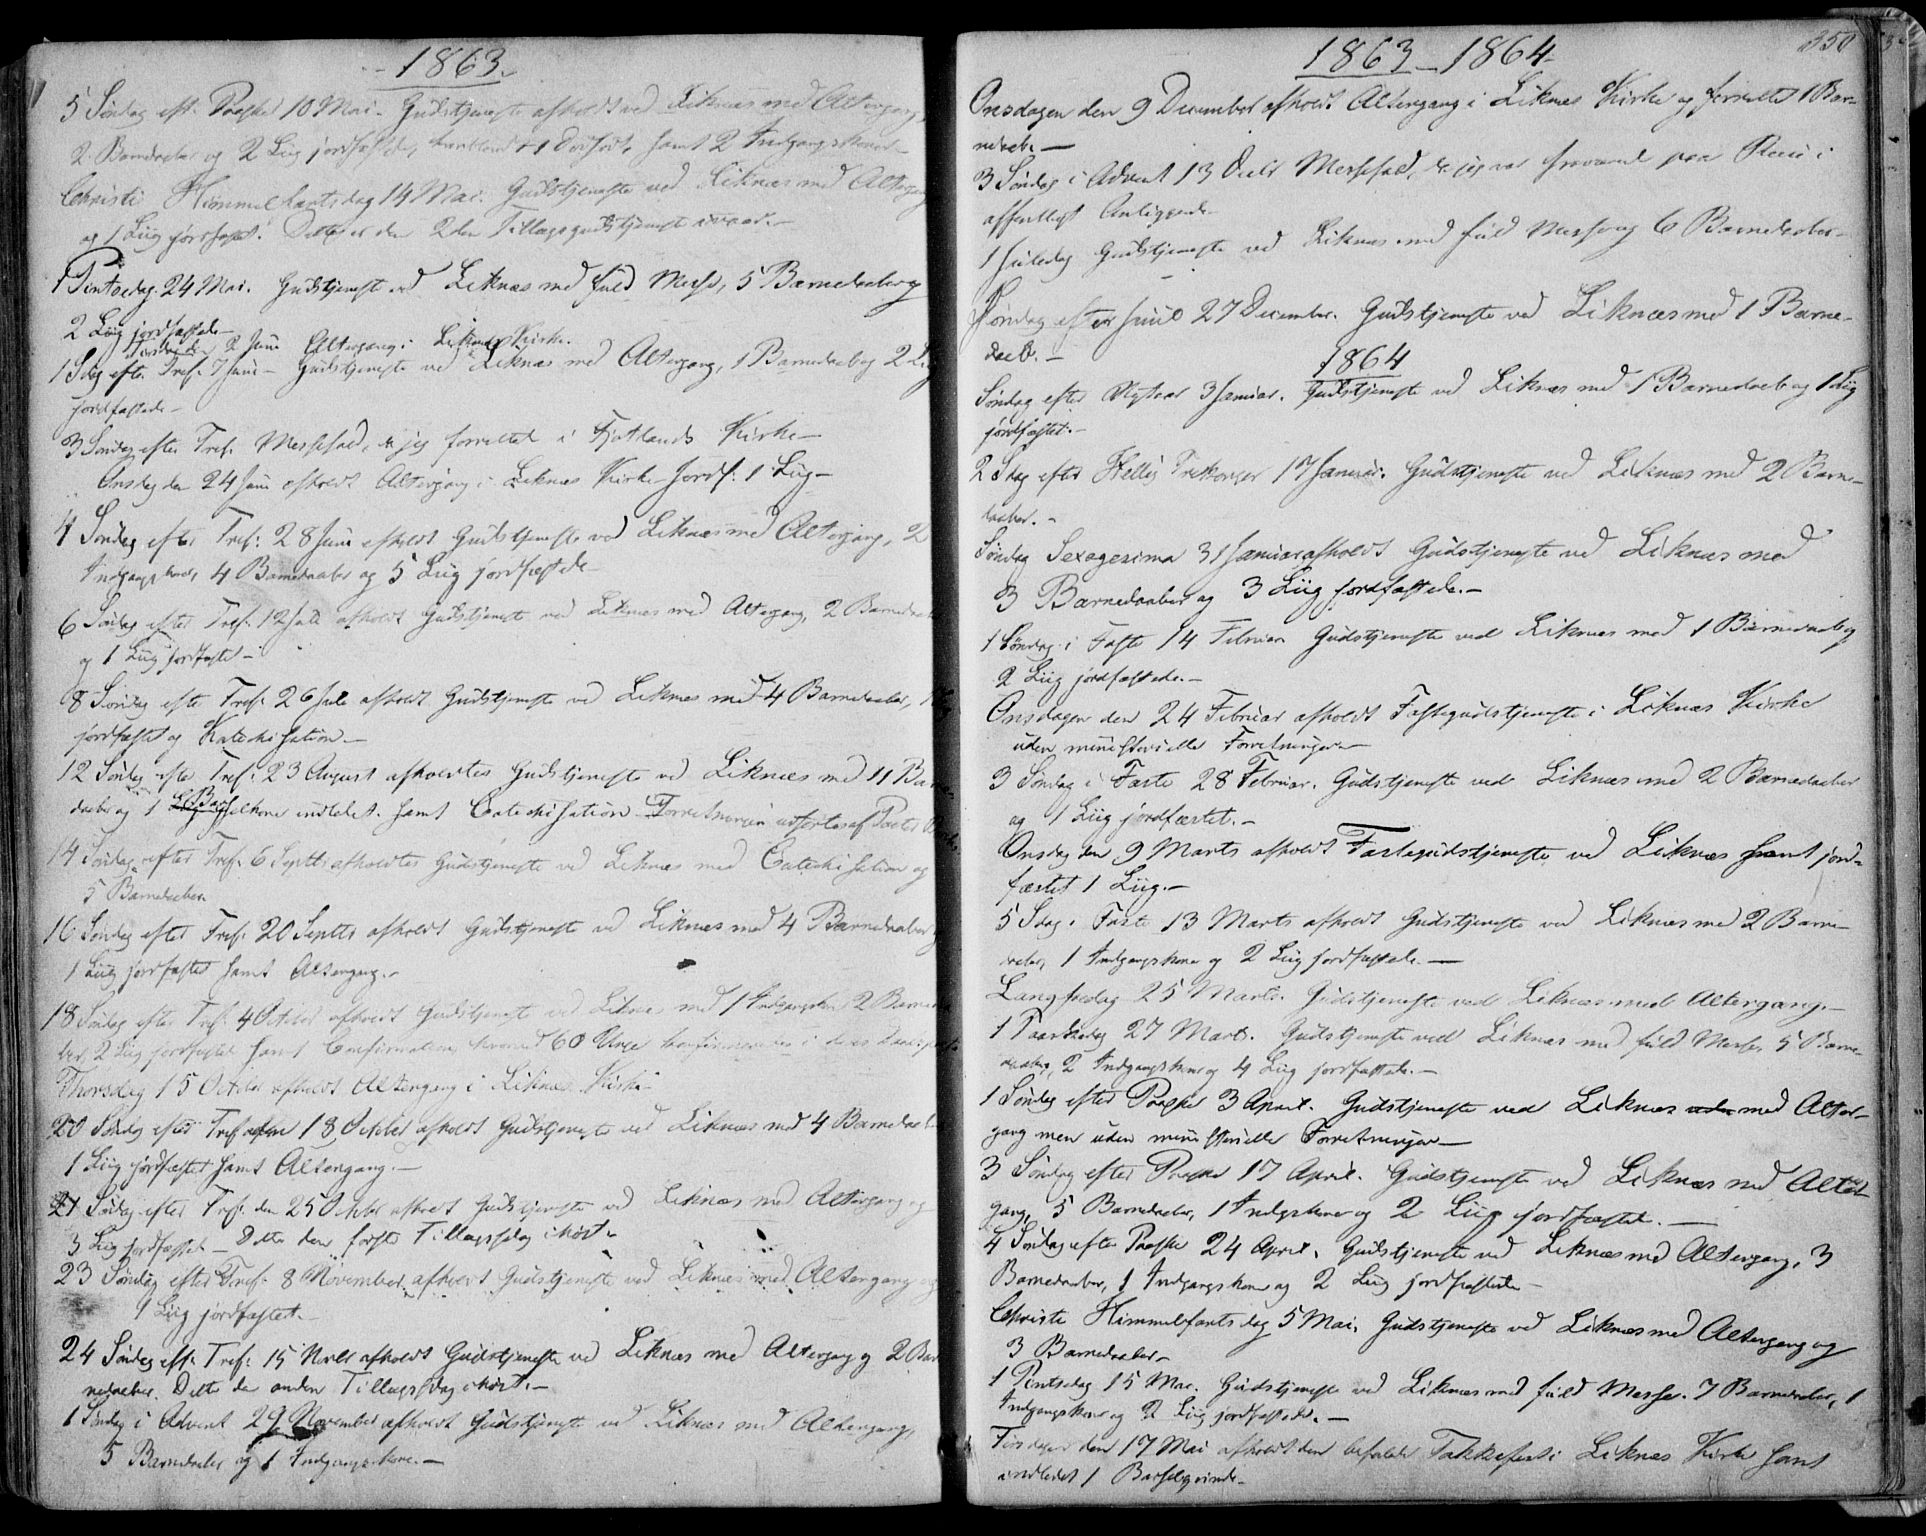 1863.
5 Søndag eft. Paaske 10 Mai. Gudstjeneste afholdt ved Liknæs med Altergang,
2 Barnedaaber og 2 Liig jordfæstede, 1 Dødfødt, samt 2 Indgangskoner
Christi Himmelfartsdag 14 Mai. Gudstjeneste ved Liknæs med Altergang
og 1 Liig jordfæstet. Dette er den 2den Tillægsgudstjeneste i vaar.-
1 Pintsedag 24 Mai. Gudstjeneste ved Liknæs med fuld Messe, 5 Barnedaaber og
2 Liig jordfæstede
Tirsdag den 2 Juni Altergang i Liknæs Kirke.
1 Sdag eft. Tref. 7 Juni - Gudstjeneste ved Liknæs med Altergang, 1 Barnedaab og 2 Liig
jordfæstede -
3 Søndag efter Tref. Messefald, da jeg forrettet i Fjotlands Kirke -
Onsdag den 24 Juni afholdt Altergang i Liknæs Kirke - Jordf. 1 Liig -
4 Søndag efter Tref: 28 Juni afholdt Gudstjeneste ved Liknæs med Altergang, 2
Indgangskoner, 4 Barnedaaber og 5 Liig jordfæstede
6 Søndag efter Tref. 12 Juli afholdt Gudstjeneste ved Liknæs med Altergang, 2 Barnedaaber
og 1 Liig jordfæstet -
8 Søndag efter Tref: 26 Juli afholdt Gudstjeneste ved Liknæs med 4 Barnedaaber, 1
jordfæstet og Katechisation.-
12 Søndag efter Tref: 23 August afholdtes Gudstjeneste ved Liknæs med 11 Barne
daaber og 1 Barselkone indledet. samt Catechisation. Forretningen udførtes af Pastor
14 Søndag efter Tref. 6 Septbr afholdtes Gudstjeneste ved Liknæs med Catechisation og
5 Barnedaaber
16 Søndag efter Tref. 20 Septbr afholdt Gudstjeneste ved Liknæs med 4 Barnedaaber
1 Liig jordfæstet samt Altergang.-
18 Søndag efter Tref. 4 October afholdt Gudstjeneste ved Liknæs med 1 Indgangskone 2 Barnedaa
ber, 2 Liig jordfæstede samt Confirmation, hvorved 60 Unge confirmeredes i deres Daabspagt
Thorsdag 15 October afholdt Altergang i Liknæs Kirke
20 Søndag efter Tref 18 Octbr afholdt Gudstjeneste ved Liknæs med 4 Barnedaaber
1 Liig jordfæstet samt Altergang.-
21 Søndag efter Tref. den 25 Octbr afholdt Gudstjeneste ved Liknæs med Altergang og
3 Liig jordfæstet - Dette den første Tillægsdag i høst.
23 Søndag efter Tref: 8 November afholdt Gudstjeneste ved Liknæs med Altergang og
1 Liig jordfæstet.
24 Søndag eft. Tref: 15 Novbr afholdt Gudstjeneste ved Liknæs med Altergang og 2 Bar
nedaaber. Dette den anden Tillægsdag i høst.-
1 Søndag i Advent 29 November afholdt Gudstjeneste ved Liknæs med Altergang,
5 Barnedaaber og 1 Indgangskone.-
1863 - 1864
350
Onsdagen den 9 December afholdt Altergang i Liknæs Kirke og forrettet 1 Bar-
nedaab. -
3 Søndag i Advent 13 Decbr Messefald, da jeg var fraværende paa Reise i
offentligt Anliggende
1 Juledag Gudstjeneste ved Liknæs med fuld Messe og 6 Barnedaaber -
Søndag efter Juul 27 December. Gudstjeneste ved Liknæs med 1 Barne-
daab. -
1864
Søndag efter Nytaar 3 Januar. Gudstjeneste ved Liknæs med 1 Barnedaab og 1 Liig
jordfæstet.-
2 Sdag efter Hellig Trekonger 17 Januar. Gudstjeneste ved Liknæs med 2 Barne-
daaber. -
Søndag Sexagesima 31 Januar afholdt Gudstjeneste ved Liknæs med
3 Barnedaaber og 3 Liig jordfæstede.-
1 Søndag i Faste 14 Februar Gudstjeneste ved Liknæs med 1 Barnedaab og
2 Liig jordfæstede.-
Onsdagen den 24 Februar afholdt Fastegudstjeneste i Liknæs Kirke
uden ministerielle Forretninger.-
3 Søndag i Faste 28 Februar. Gudstjeneste ved Liknæs med 2 Barnedaaber
og 1 Liig jordfæstet.-
Onsdag den 9 Marts afholdt Fastegudstjeneste ved Liknæs samt jord-
fæstet 1 Liig.-
5 Sdag i Faste 13 Marts afholdt Gudstjeneste ved Liknæs med 2 Barne-
daaber, 1 Indgangskone og 2 Liig jordfæstede. -
Langfredag 25 Marts. Gudstjeneste ved Liknæs med Altergang.-
1 Paaskedag 27 Marts. Gudstjeneste ved Liknæs med fuld Messe, 5 Barne-
daaber, 2 Indgangskoner og 4 Liig jordfæstede.-
1 Søndag efter Paaske 3 April. Gudstjeneste ved Liknæs med Alter-
gang men uden ministerielle Forretninger -
3 Søndag efter Paaske 17 April. Gudstjeneste ved Liknæs med Alter-
gang, 5 Barnedaaber, 1 Indgskone og 2 Liig jordfæstet. -
4 Søndag efter Paaske 24 April. Gudstjeneste ved Liknæs med Altergang, 3
Barnedaaber, 1 Indgangskone og 2 Liig jordfæstede
Christi Himmelfarts dag 5 Mai, Gudstjeneste ved Liknæs med Altergang og
3 Barnedaaber.
1 Pintsdag 15 Mai. Gudstjeneste ved Liknæs med fuld Messe. 7 Barnedaaber, 1
Indgangskone og 2 Liig jordfæstede. -
Tirsdagen den 17 Mai afholdt den befalede Takkefest i Liknæs Kirke samt
indledet 1 Barselqvinde.